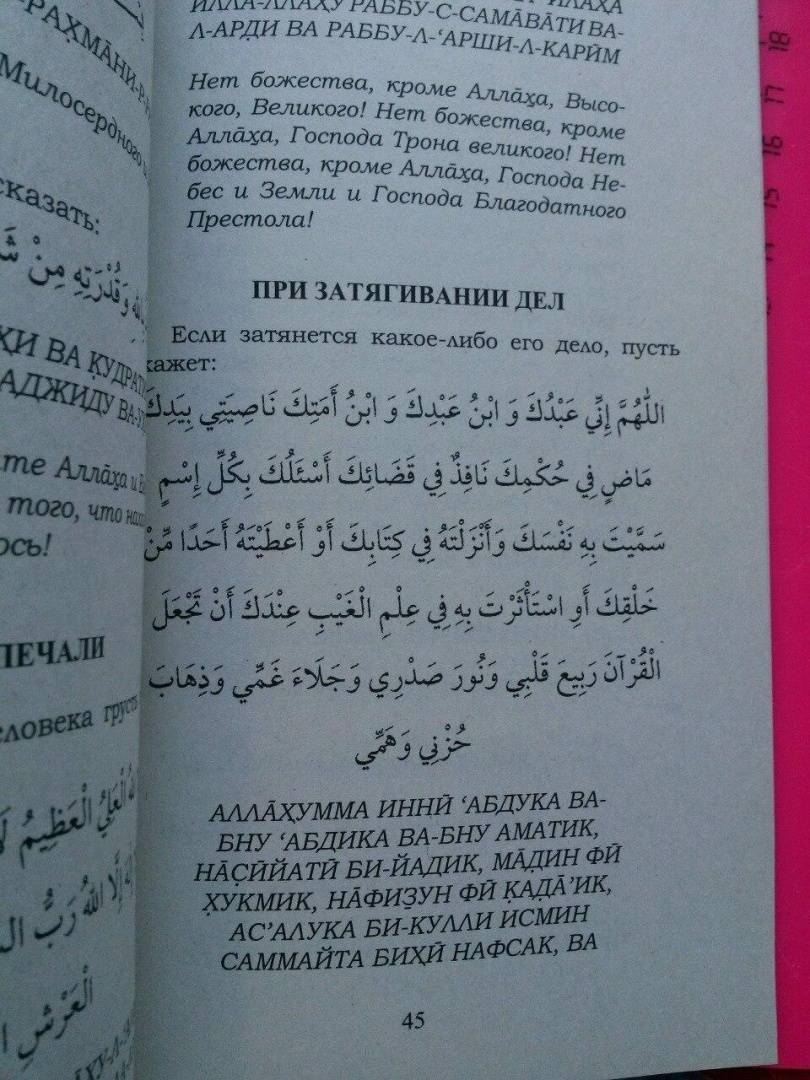 -РАҲМĀНИ-Р-
Милосердного
сказать:
وَقُدْرَتِهِ مِنْ
ҲИ ВА ҚУДРАТИ
АДЖИДУ ВА-У
те Аллāҳа и
того, что нах
ось!
ПЕЧАЛИ
еловека грусть
الْعَلِيُّ الْعَظِيمُ
إِلَّا اللهُ رَبُّ
الْعَرْشِ
ИЛЛА-ЛЛĀҲУ РАББУ-С-САМĀВĀТИ ВА-
Л-АРДИ ВА РАББУ-Л-‘АРШИ-Л-КАРӢМ
Нет божества, кроме Аллāҳа, Высо-
кого, Великого! Нет божества, кроме
Аллāҳа, Господа Трона великого! Нет
божества, кроме Аллāҳа, Господа Не-
бес и Земли и Господа Благодатного
Престола!
ПРИ ЗАТЯГИВАНИИ ДЕЛ
Если затянется какое-либо его дело, пусть
кажет:
اللّٰهُمَّ إِنِّي عَبْدُكَ وَ ابْنُ عَبْدِكَ وَ ابْنُ أَمَتِكَ نَاصِيَتِي بِيَدِكَ
مَاضٍ فِي حُكْمِكَ نَافِذٌ فِي قَضَائِكَ أَسْئَلُكَ بِكُلِّ إِسْمٍ
سَمَّيْتَ بِهِ نَفْسَكَ وَأَنْزَلْتَهُ فِي كِتَابِكَ أَوْ أَعْطَيْتَهُ أَحَدًا مِّنْ
خَلْقِكَ أَوِ اسْتَأْثَرْتَ بِهِ فِي عِلْمِ الْغَيْبِ عِنْدَكَ أَنْ تَجْعَلَ
الْقُرْآنَ رَبِيعَ قَلْبِي وَنُورَ صَدْرِي وَجَلَاءَ غَمِّي وَذِهَابَ
حُزْنِي وَهَمِّي
АЛЛĀҲУММА ИННӢ ‘АБДУКА ВА-
БНУ ‘АБДИКА ВА-БНУ АМАТИК,
НĀṢӢЙАТӢ БИ-ЙАДИК, МĀДИН ФӢ
ҲУКМИК, НĀФИЗУН ФӢ ҚАДĀ’ИК,
АС’АЛУКА БИ-КУЛЛИ ИСМИН
САММАЙТА БИҲӢ НАФСАК, ВА
45
18
17
16
15